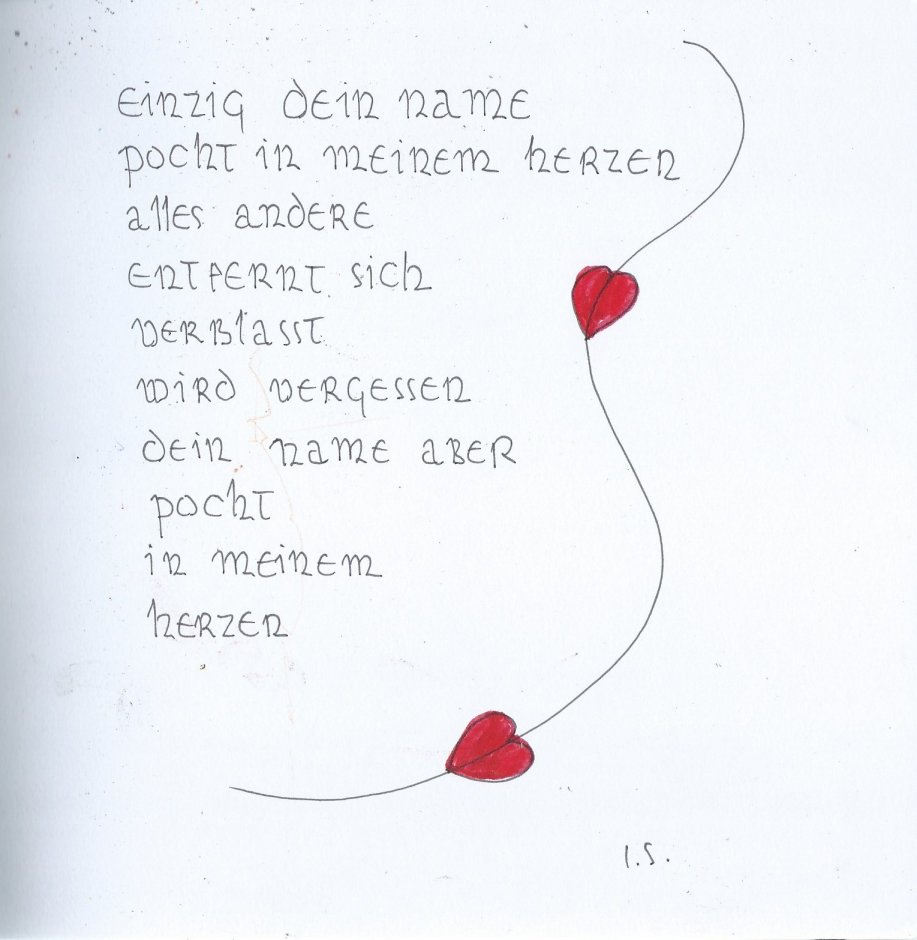 einzig dein name
pocht in meinem herzen
alles andere
entfernt sich
verblasst
wird vergessen
dein name aber
pocht
in meinem
herzen
I.S.